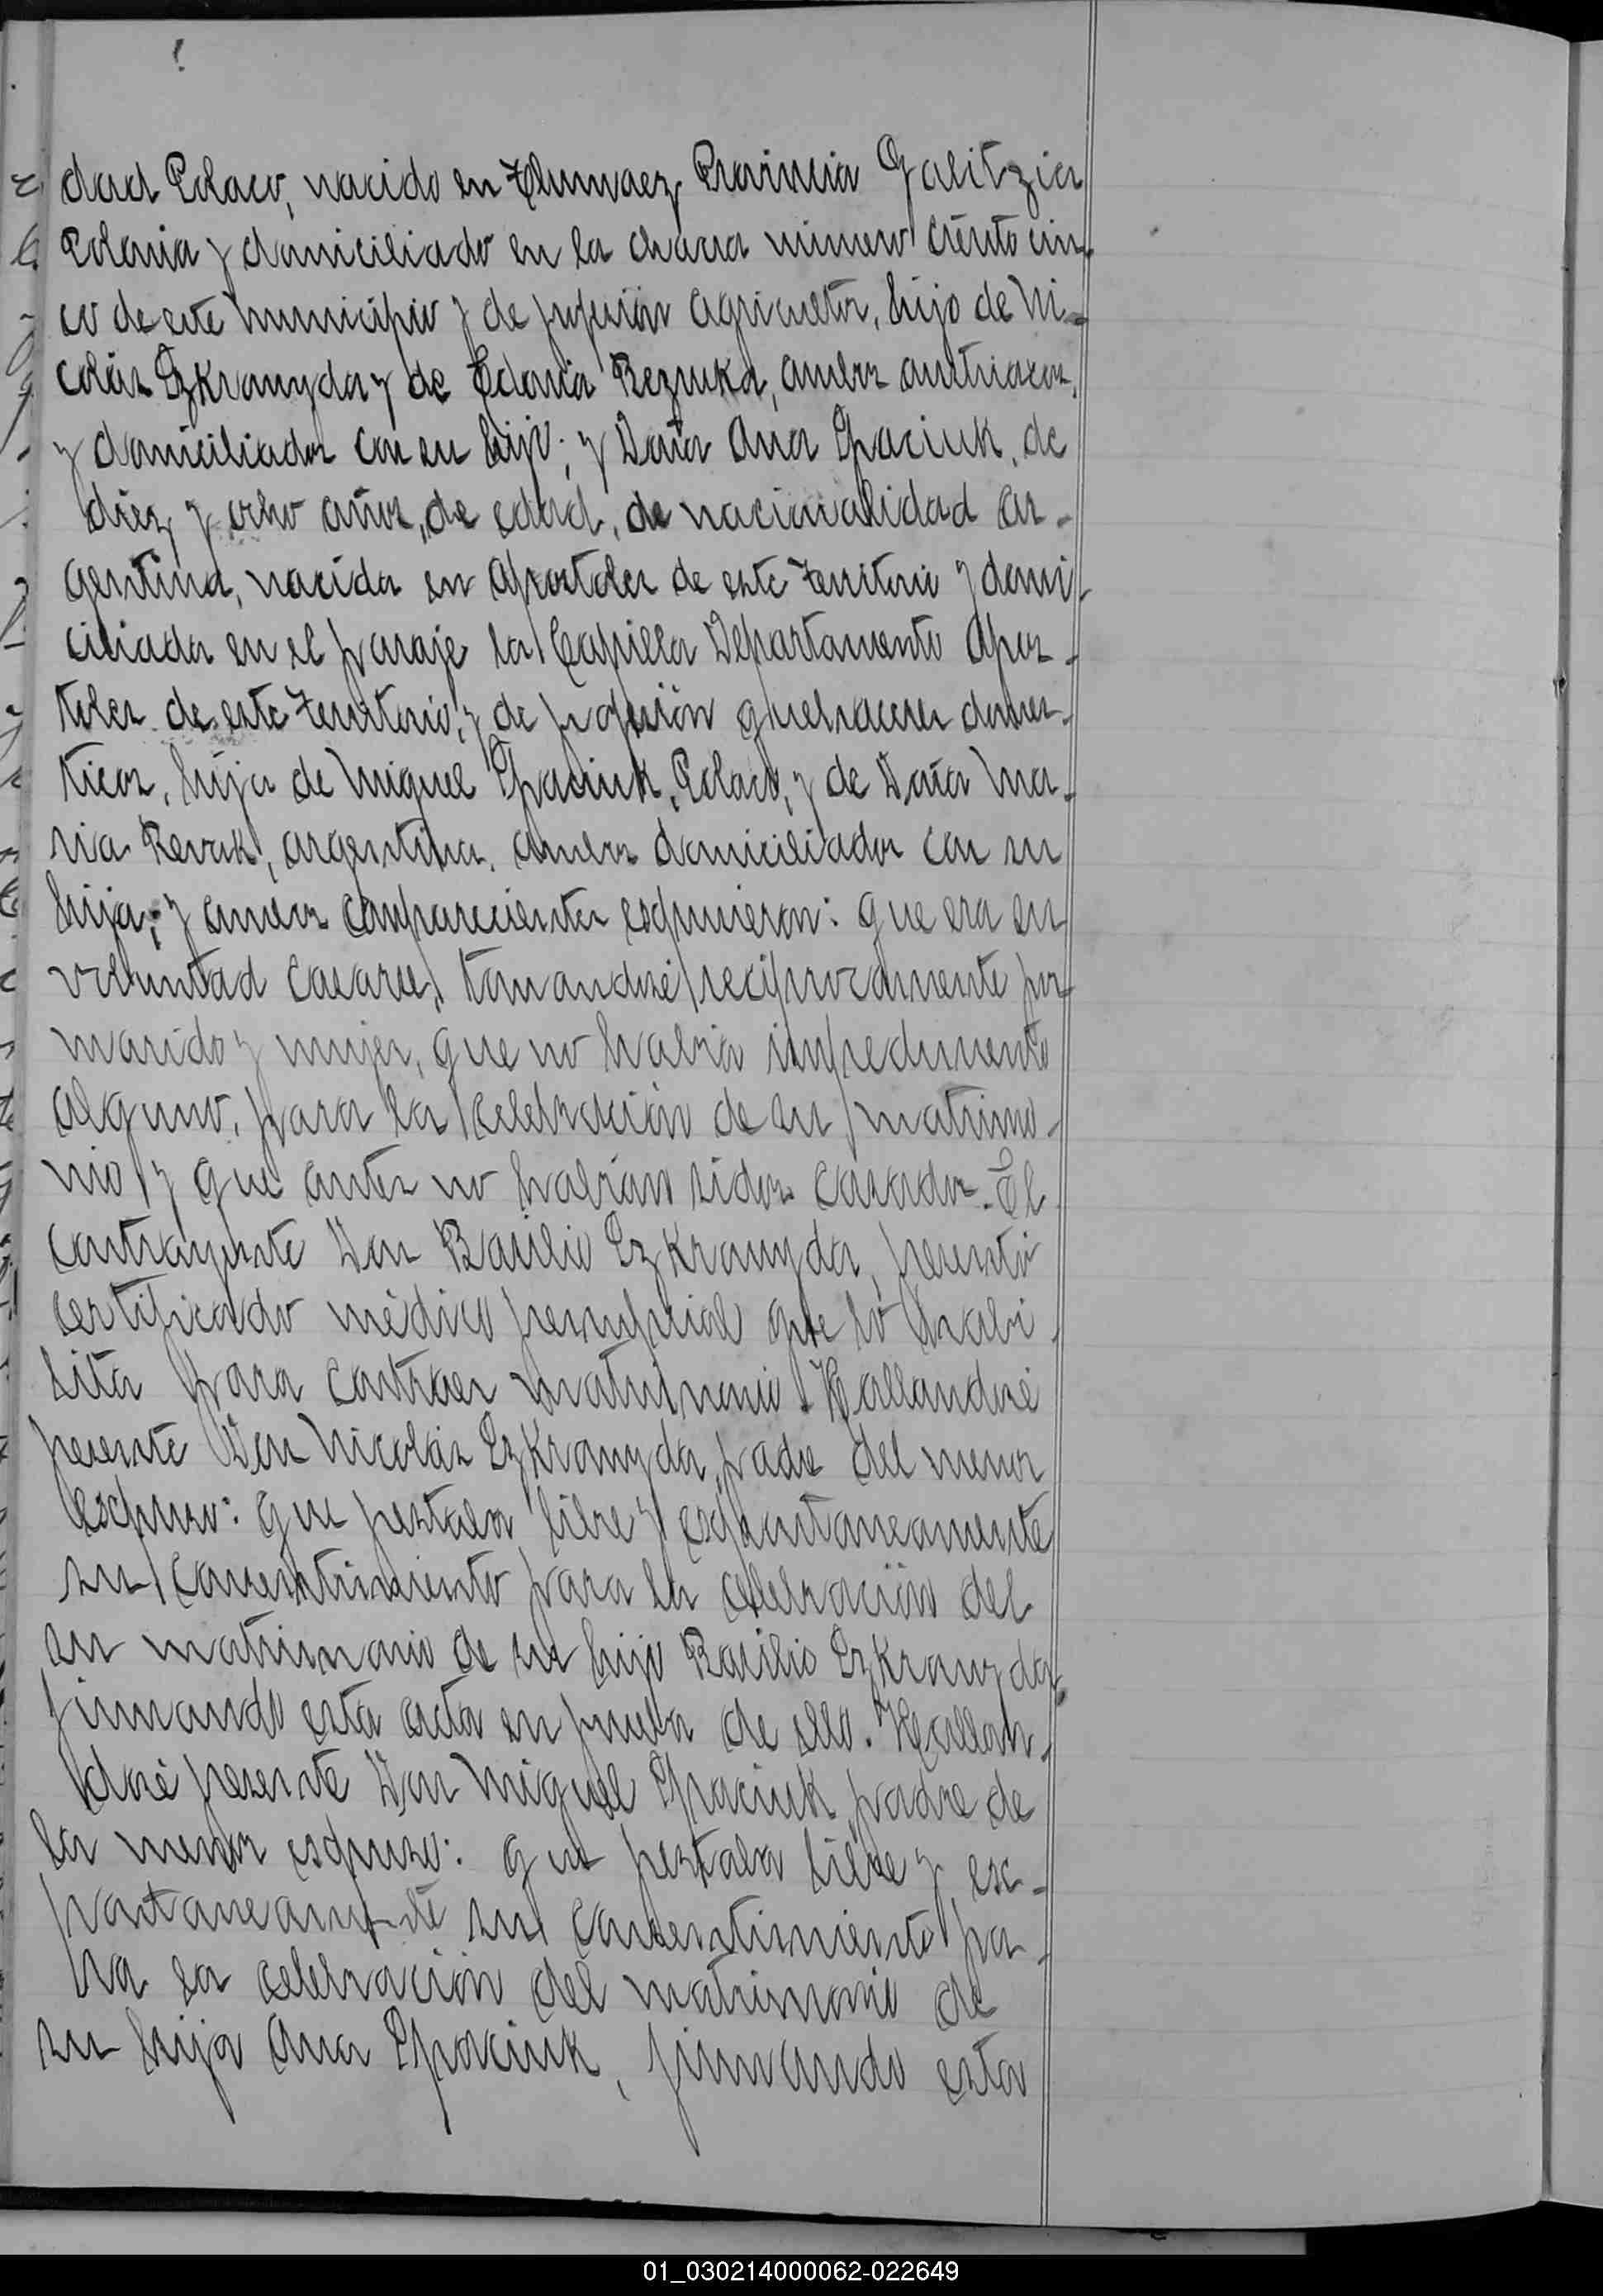 dad Polaco, nacido en Provincia Galitzia
Polonia y domiciliado en la chacra número ciento cin
co de este municipio y de profesión agricultor, hijo de Ni-
colás Ezkromyda y de Rezpuka, ambos austriacos,
y domiciliados con su hijo; y Doña Ana Opaciuk, de
diez y ocho años, de edad, de nacionalidad ar-
gentina, nacida en Apostoles de este Territorio y domi
ciliada en el paraje la Capilla Departamento Apos-
toles de este Territorio, y de profesión quehaceres domes-
ticos, hija de Miguel Opaciuk, Polaco, y de Doña Ma-
ria argentina, ambos domiciliados con su
hija; y ambos comparecientes espusieron: que era su
voluntad casarse, tomandosé reciprocamente por
marido y mujer, que no habia impedimento
alguno, para la celebración de su matrimo-
nio y que antes no habian sidos casados. El
contrayente Don Basilio Ezkromyda, presentó
certificado médico prenupcial que lo habi-
lita para contraer matrimonio. Hallandosé
presente Don Nicolás Ezkromyda, padre del menor
espuso: que prestaba libre y espontaneamente
su consentimiento para la celebración del
su matrimonio de su hijo Basilio Ezkromyda,
firmando esta acta en prueba de ello. Hallan-
dosé presente Don Miguel Opaciuk, padre de
la menor espuso: que prestaba libre y es-
pontaneamente su consentimiento pa-
ra la celebración del matrimonio de
su hija Ana Opaciuk, firmando esta
01_030214000062-022649